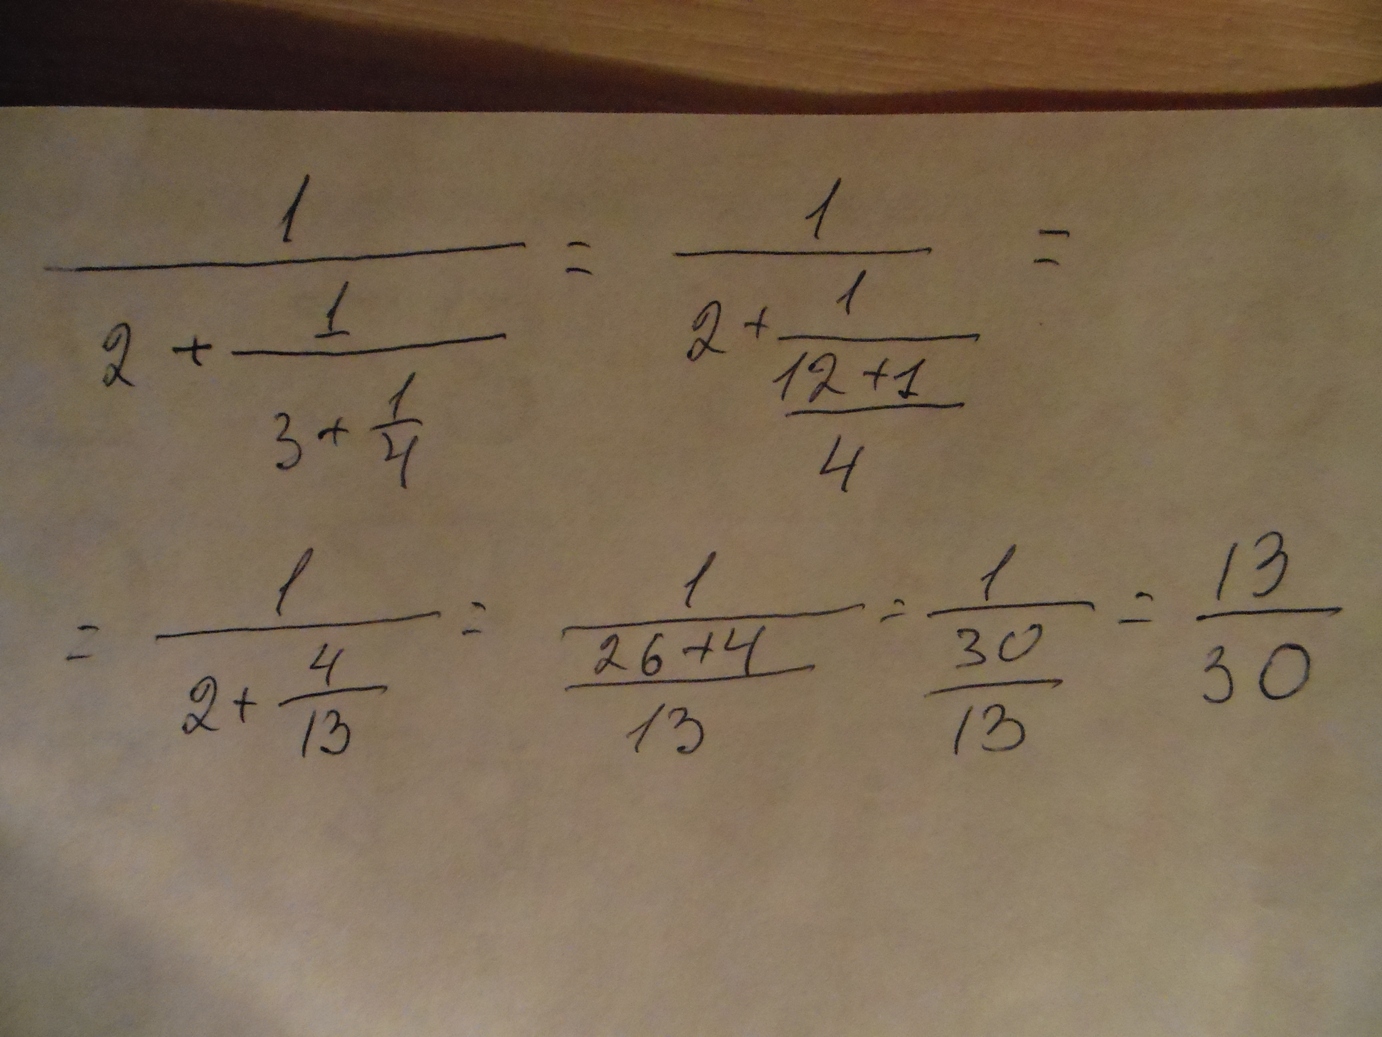 1/(2 + 1/(3 + 1/4)) = 1/(2 + 1/((12 + 1)/4)) =
= 1/(2 + 4/13) = 1/((26 + 4)/13) = 1/(30/13) = 13/30